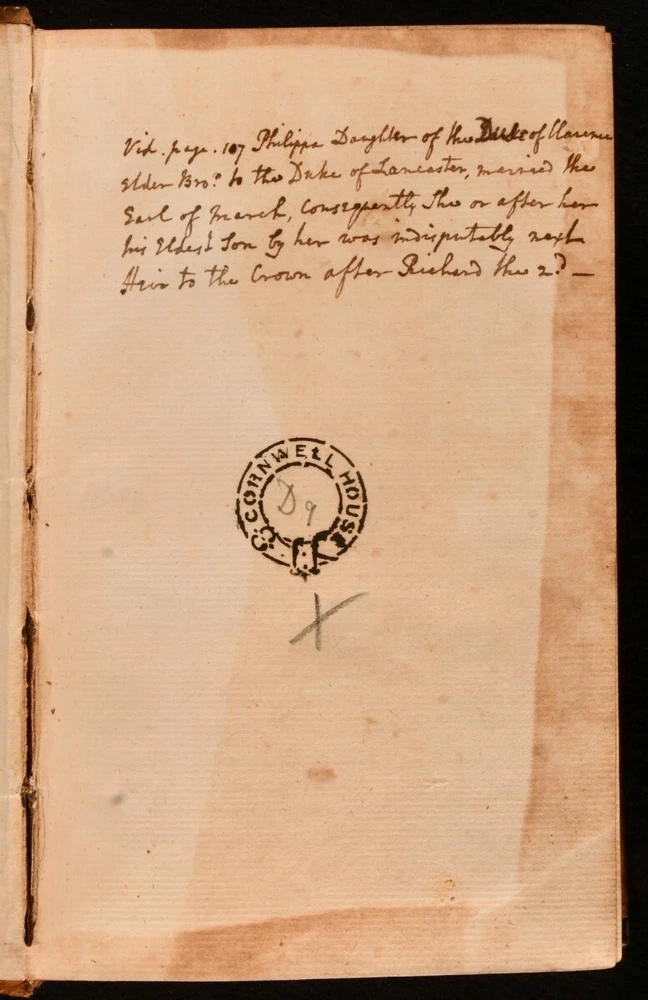 Vid. page. 107 Philippa Daughter of the Duke of Clarence
Elder Bro.r to the Duke of Lancaster, married the
Earl of March, consequently She or after her
his Eldest Son by her was indisputably next
Heir to the Crown after Richard the 2.d —
CORNWELL HOUSE
D9
X